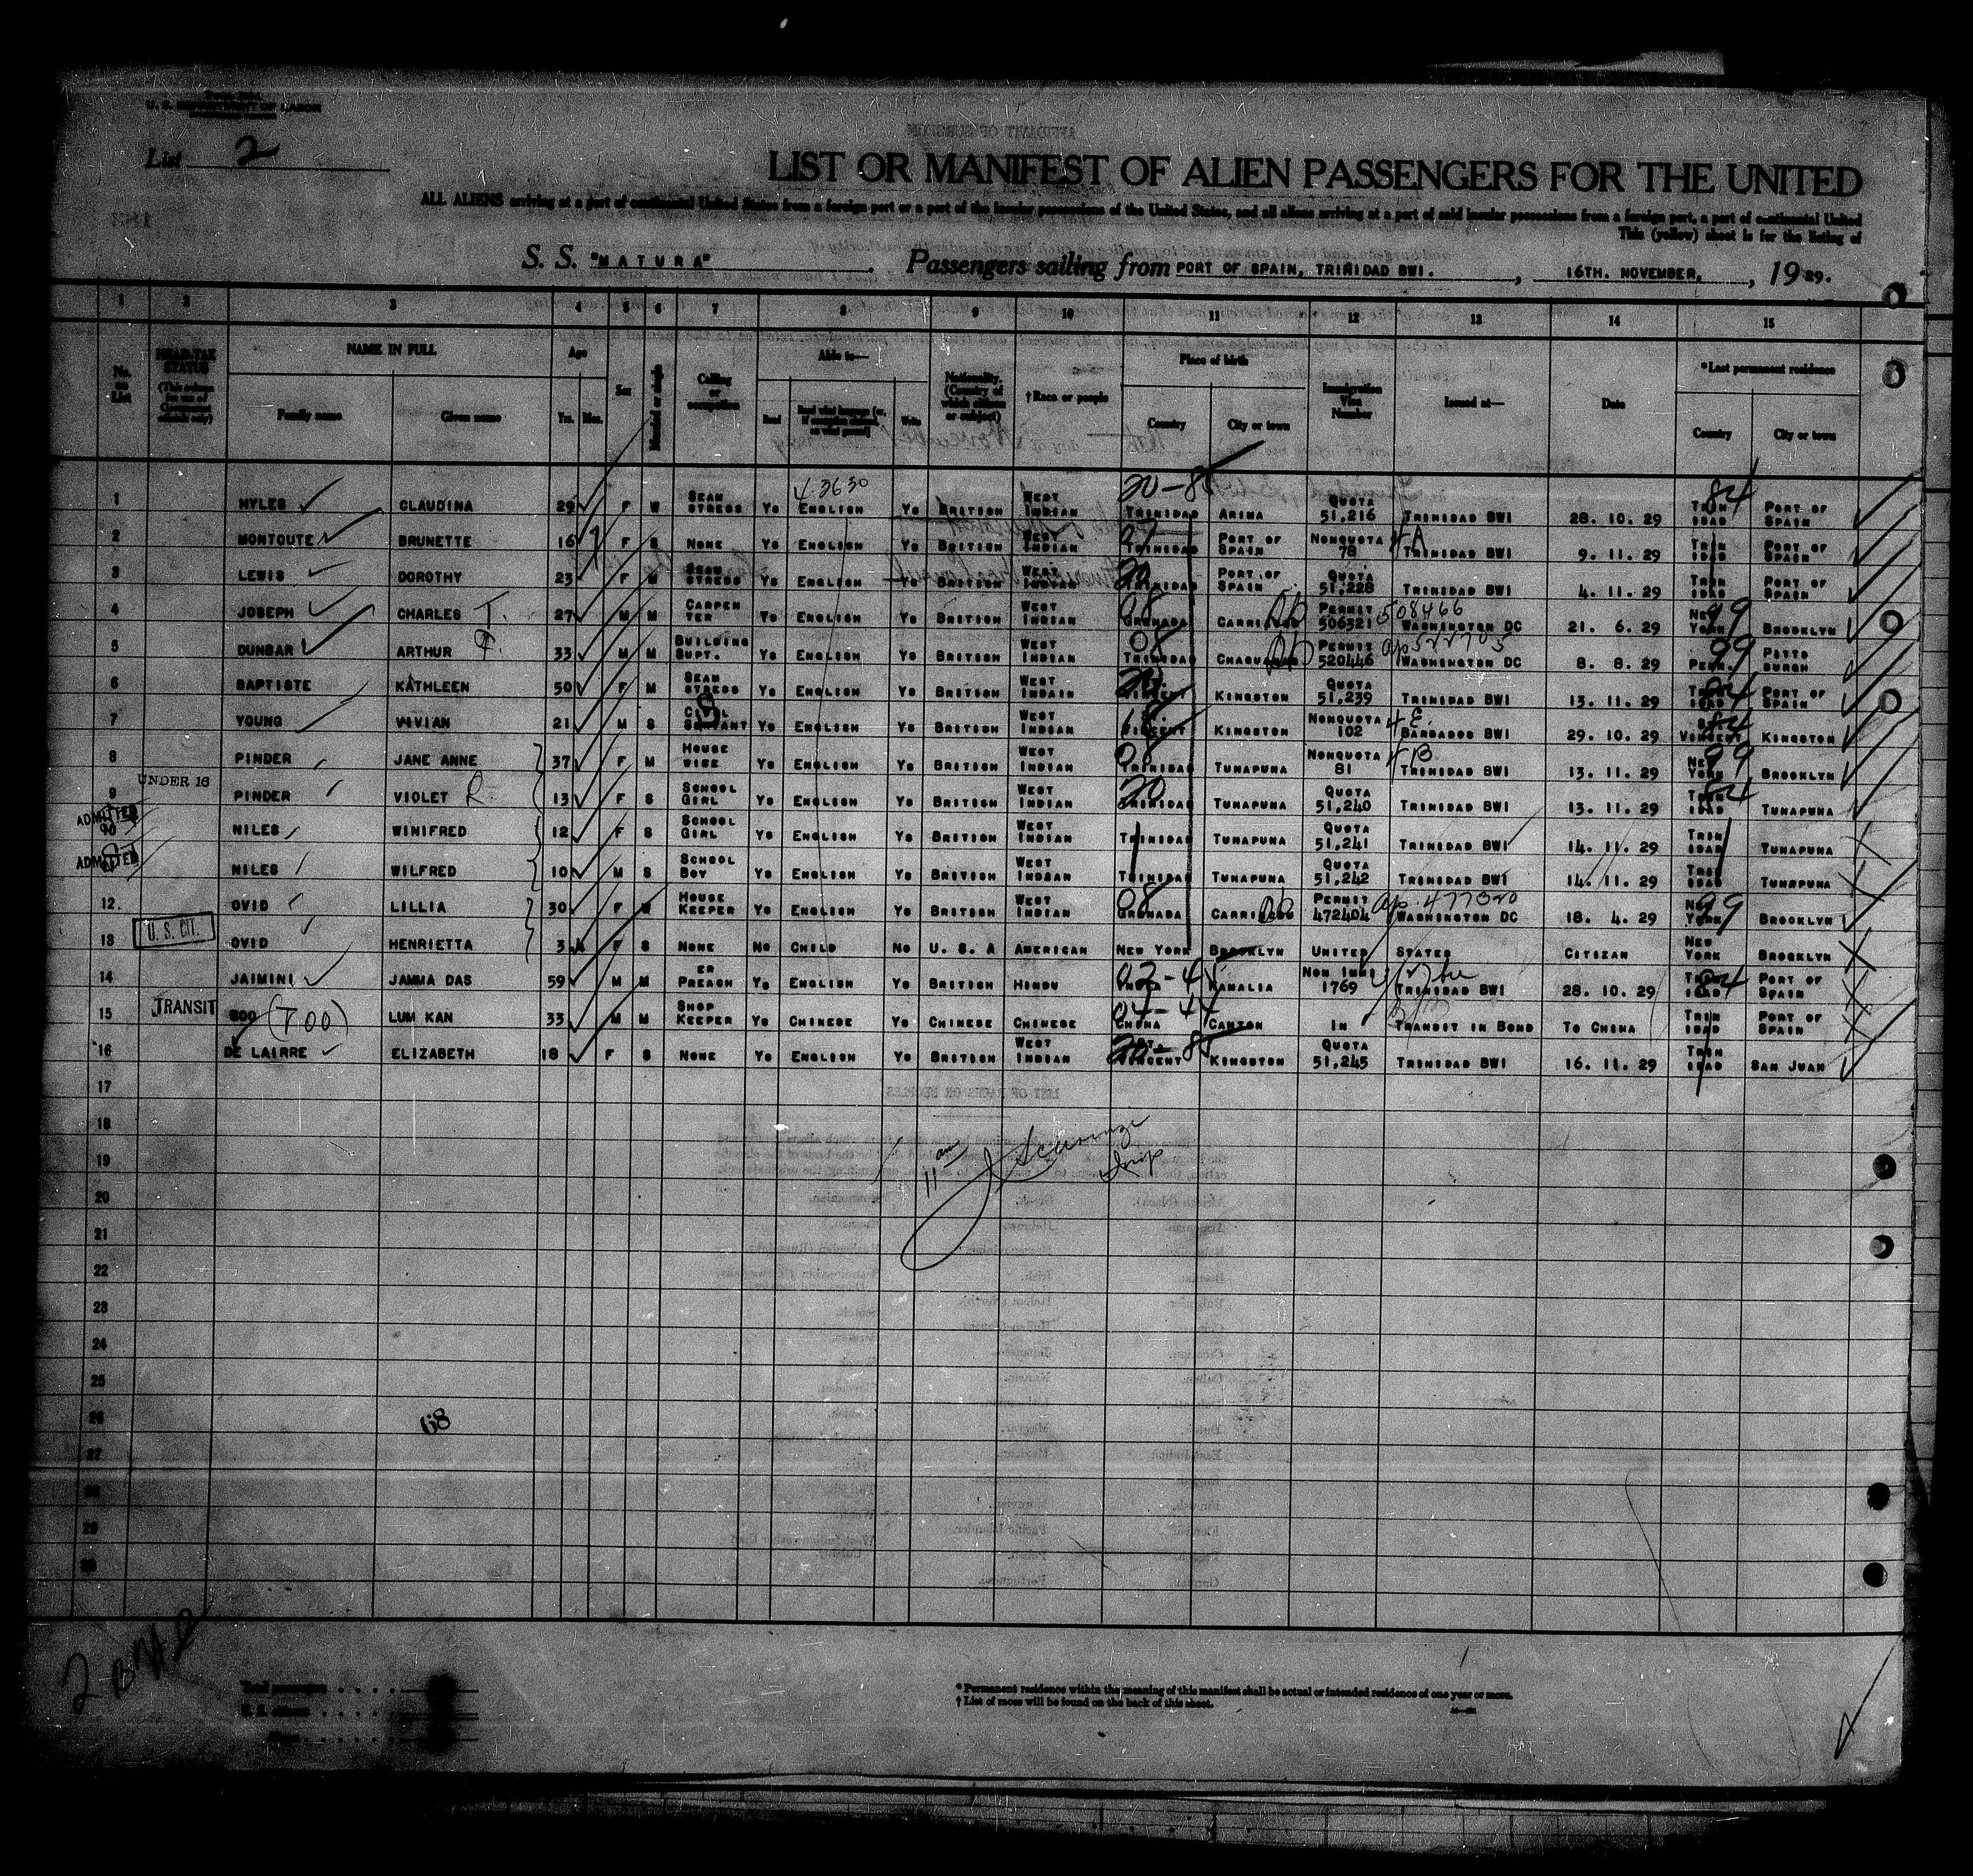 U. S. DEPARTMENT OF LABOR
List 2
LIST OR MANIFEST OF ALIEN PASSENGERS FOR THE UNITED
ALL ALIENS arriving at a port of continental United States from a foreign port or a port of the insular possessions of the United States, and all aliens arriving at a port of said insular possessions from a foreign port, a port of continental United
This (yellow) sheet is for the listing of
S. S. "MATURA" Passengers sailing from PORT OF SPAIN, TRINIDAD BWI. , 16TH. NOVEMBER, , 1929.
1 2 3 4 5 6 7 8 9 10 11 12 13 14 15
No. on List HEAD-TAX STATUS (This column for use of Government officials only) NAME IN FULL Family name Given name Age Yrs. Mos. Sex Married or single Calling or occupation Able to— Read Read what language (or, if exemption claimed, on what ground) Write Nationality. (Country of which citizen or subject) †Race or people Place of birth Country City or town Immigration Visa Number Issued at— Date *Last permanent residence Country City or town
1 MYLES CLAUDINA 29 F W SEAM STRESS YS 4 3630 ENGLISH YS BRITISH WEST INDIAN 20-8 TRINIDAD ARIMA QUOTA 51,216 TRINIDAD BWI 28. 10. 29 TRIN IDAD 84 PORT OF SPAIN
2 MONTOUTE BRUNETTE 16 F S NONE YS ENGLISH YS BRITISH WEST INDIAN TRINIDAD PORT OF SPAIN NONQUOTA 78 4A TRINIDAD BWI 9. 11. 29 TRIN IDAD PORT OF SPAIN
3 LEWIS DOROTHY 23 F M SEAM STRESS YS ENGLISH YS BRITISH WEST INDIAN 20 TRINIDAD PORT OF SPAIN QUOTA 51,228 TRINIDAD BWI 4. 11. 29 TRIN IDAD PORT OF SPAIN
4 JOSEPH CHARLES T. 27 M M CARPEN TER YS ENGLISH YS BRITISH WEST INDIAN 08 GRENADA PERMIT 506321 508466 WASHINGTON DC 21. 6. 29 NEW YORK 99 BROOKLYN
5 DUNBAR ARTHUR 33 M M BUILDING SUPT. YS ENGLISH YS BRITISH WEST INDIAN 08 TRINIDAD PERMIT 520446 WASHINGTON DC 8. 8. 29 PENN. 99 PITTS BURGH
6 BAPTISTE KATHLEEN 50 F M SEAM STRESS YS ENGLISH YS BRITISH WEST INDAIN 20 KINGSTON QUOTA 51,239 TRINIDAD BWI 13. 11. 29 TRIN IDAD 84 PORT OF SPAIN
7 YOUNG VIVIAN 21 M S CIVIL SERVANT YS ENGLISH YS BRITISH WEST INDIAN VINCENT KINGSTON NONQUOTA 102 4E. BARBADOS BWI 29. 10. 29 VINCENT 84 KINGSTON
8 PINDER JANE ANNE 37 F M HOUSE WIFE YS ENGLISH YS BRITISH WEST INDIAN 08 TRINIDAD TUNAPUNA NONQUOTA 81 4B TRINIDAD BWI 13. 11. 29 NEW YORK 99 BROOKLYN
UNDER 16
9 PINDER VIOLET R 13 F S SCHOOL GIRL YS ENGLISH YS BRITISH WEST INDIAN 20 TRINIDAD TUNAPUNA QUOTA 51,240 TRINIDAD BWI 13. 11. 29 TRIN IDAD 84 TUNAPUNA
ADMITTED 10 NILES WINIFRED 12 F S SCHOOL GIRL YS ENGLISH YS BRITISH WEST INDIAN TRINIDAD TUNAPUNA QUOTA 51,241 TRINIDAD BWI 14. 11. 29 TRIN IDAD TUNAPUNA
ADMITTED NILES WILFRED 10 M S SCHOOL BOY YS ENGLISH YS BRITISH WEST INDIAN TRINIDAD TUNAPUNA QUOTA 51,242 TRINIDAD BWI 14. 11. 29 TRIN IDAD TUNAPUNA
12. OVID LILLIA 30 F W HOUSE KEEPER YS ENGLISH YS BRITISH WEST INDIAN 08 GRENADA PERMIT 472404 WASHINGTON DC 18. 4. 29 NEW YORK 99 BROOKLYN
13 U. S. CIT. OVID HENRIETTA 3 F S NONE NO CHILD NO U. S. A AMERICAN NEW YORK BROOKLYN UNITED STATES CITIZAN NEW YORK BROOKLYN
14 JAIMINI JAMMA DAS 59 M M ER PREACH YS ENGLISH YS BRITISH HINDU KAMALIA NON IMMI 1769 TRINIDAD BWI 28. 10. 29 TRIN IDAD 84 PORT OF SPAIN
15 TRANSIT SOO (TOO) LUM KAN 33 M M SHOP KEEPER YS CHINESE YS CHINESE CHINESE 04-44 CHINA CANTON IN TRANSIT IN BOND TO CHINA TRIN IDAD PORT OF SPAIN
16 DE LAIRRE ELIZABETH 18 F S NONE YS ENGLISH YS BRITISH WEST INDIAN VINCENT KINGSTON QUOTA 51,245 TRINIDAD BWI 16. 11. 29 TRIN IDAD SAN JUAN
17
18
19
11 am
20
21
22
23
24
25
26
68
27
28
29
30
Total passengers
U. S. citizens
Aliens
* Permanent residence within the meaning of this manifest shall be actual or intended residence of one year or more.
† List of races will be found on the back of this sheet.